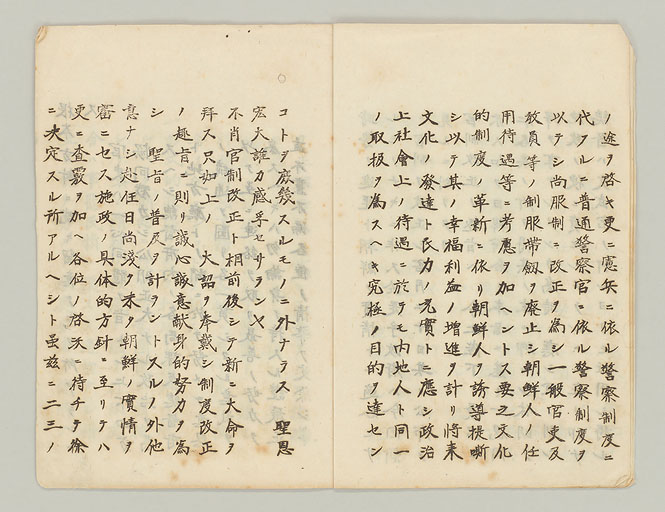 ノ途ヲ啓キ更ニ憲兵ニ依ル警察制度ニ
代フルニ普通警察官ニ依ル警察制度ヲ
以テシ尚服制ニ改正ヲ為シ一般官吏及
教員等ノ制服帯劔ヲ廃止シ朝鮮人ノ任
用待遇等ニ考慮ヲ加ヘントス要之文化
的制度ノ革新ニ依リ朝鮮人ヲ誘導提嘶
シ以テ其ノ幸福利益ノ増進ヲ計リ将来
文化ノ發達ト民力ノ充實トニ應シ政治
上社會上ノ待遇ニ於テモ内地人ト同一
ノ取扱ヲ為スヘキ究極ノ目的ヲ達セン
コトヲ庶幾スルモノニ外ナラス 聖恩
宏大誰カ感孚セサランヤ
不肖官制改正ト相前後シテ新ニ大命ヲ
拜ス只如上ノ 大詔ヲ奉戴シ制度改正
ノ趣旨ニ則リ誠心誠意献身的努力ヲ為
シ 聖旨ノ普及ヲ計ラントスルノ外他
意ナシ赴任日尚淺ク未タ朝鮮ノ實情ヲ
審ニセス施政ノ具体的方針ニ至リテハ
更ニ査覈ヲ加ヘ各位ノ啓沃ニ待チテ徐
ニ决定スル所アルヘシト虽茲ニ二三ノ